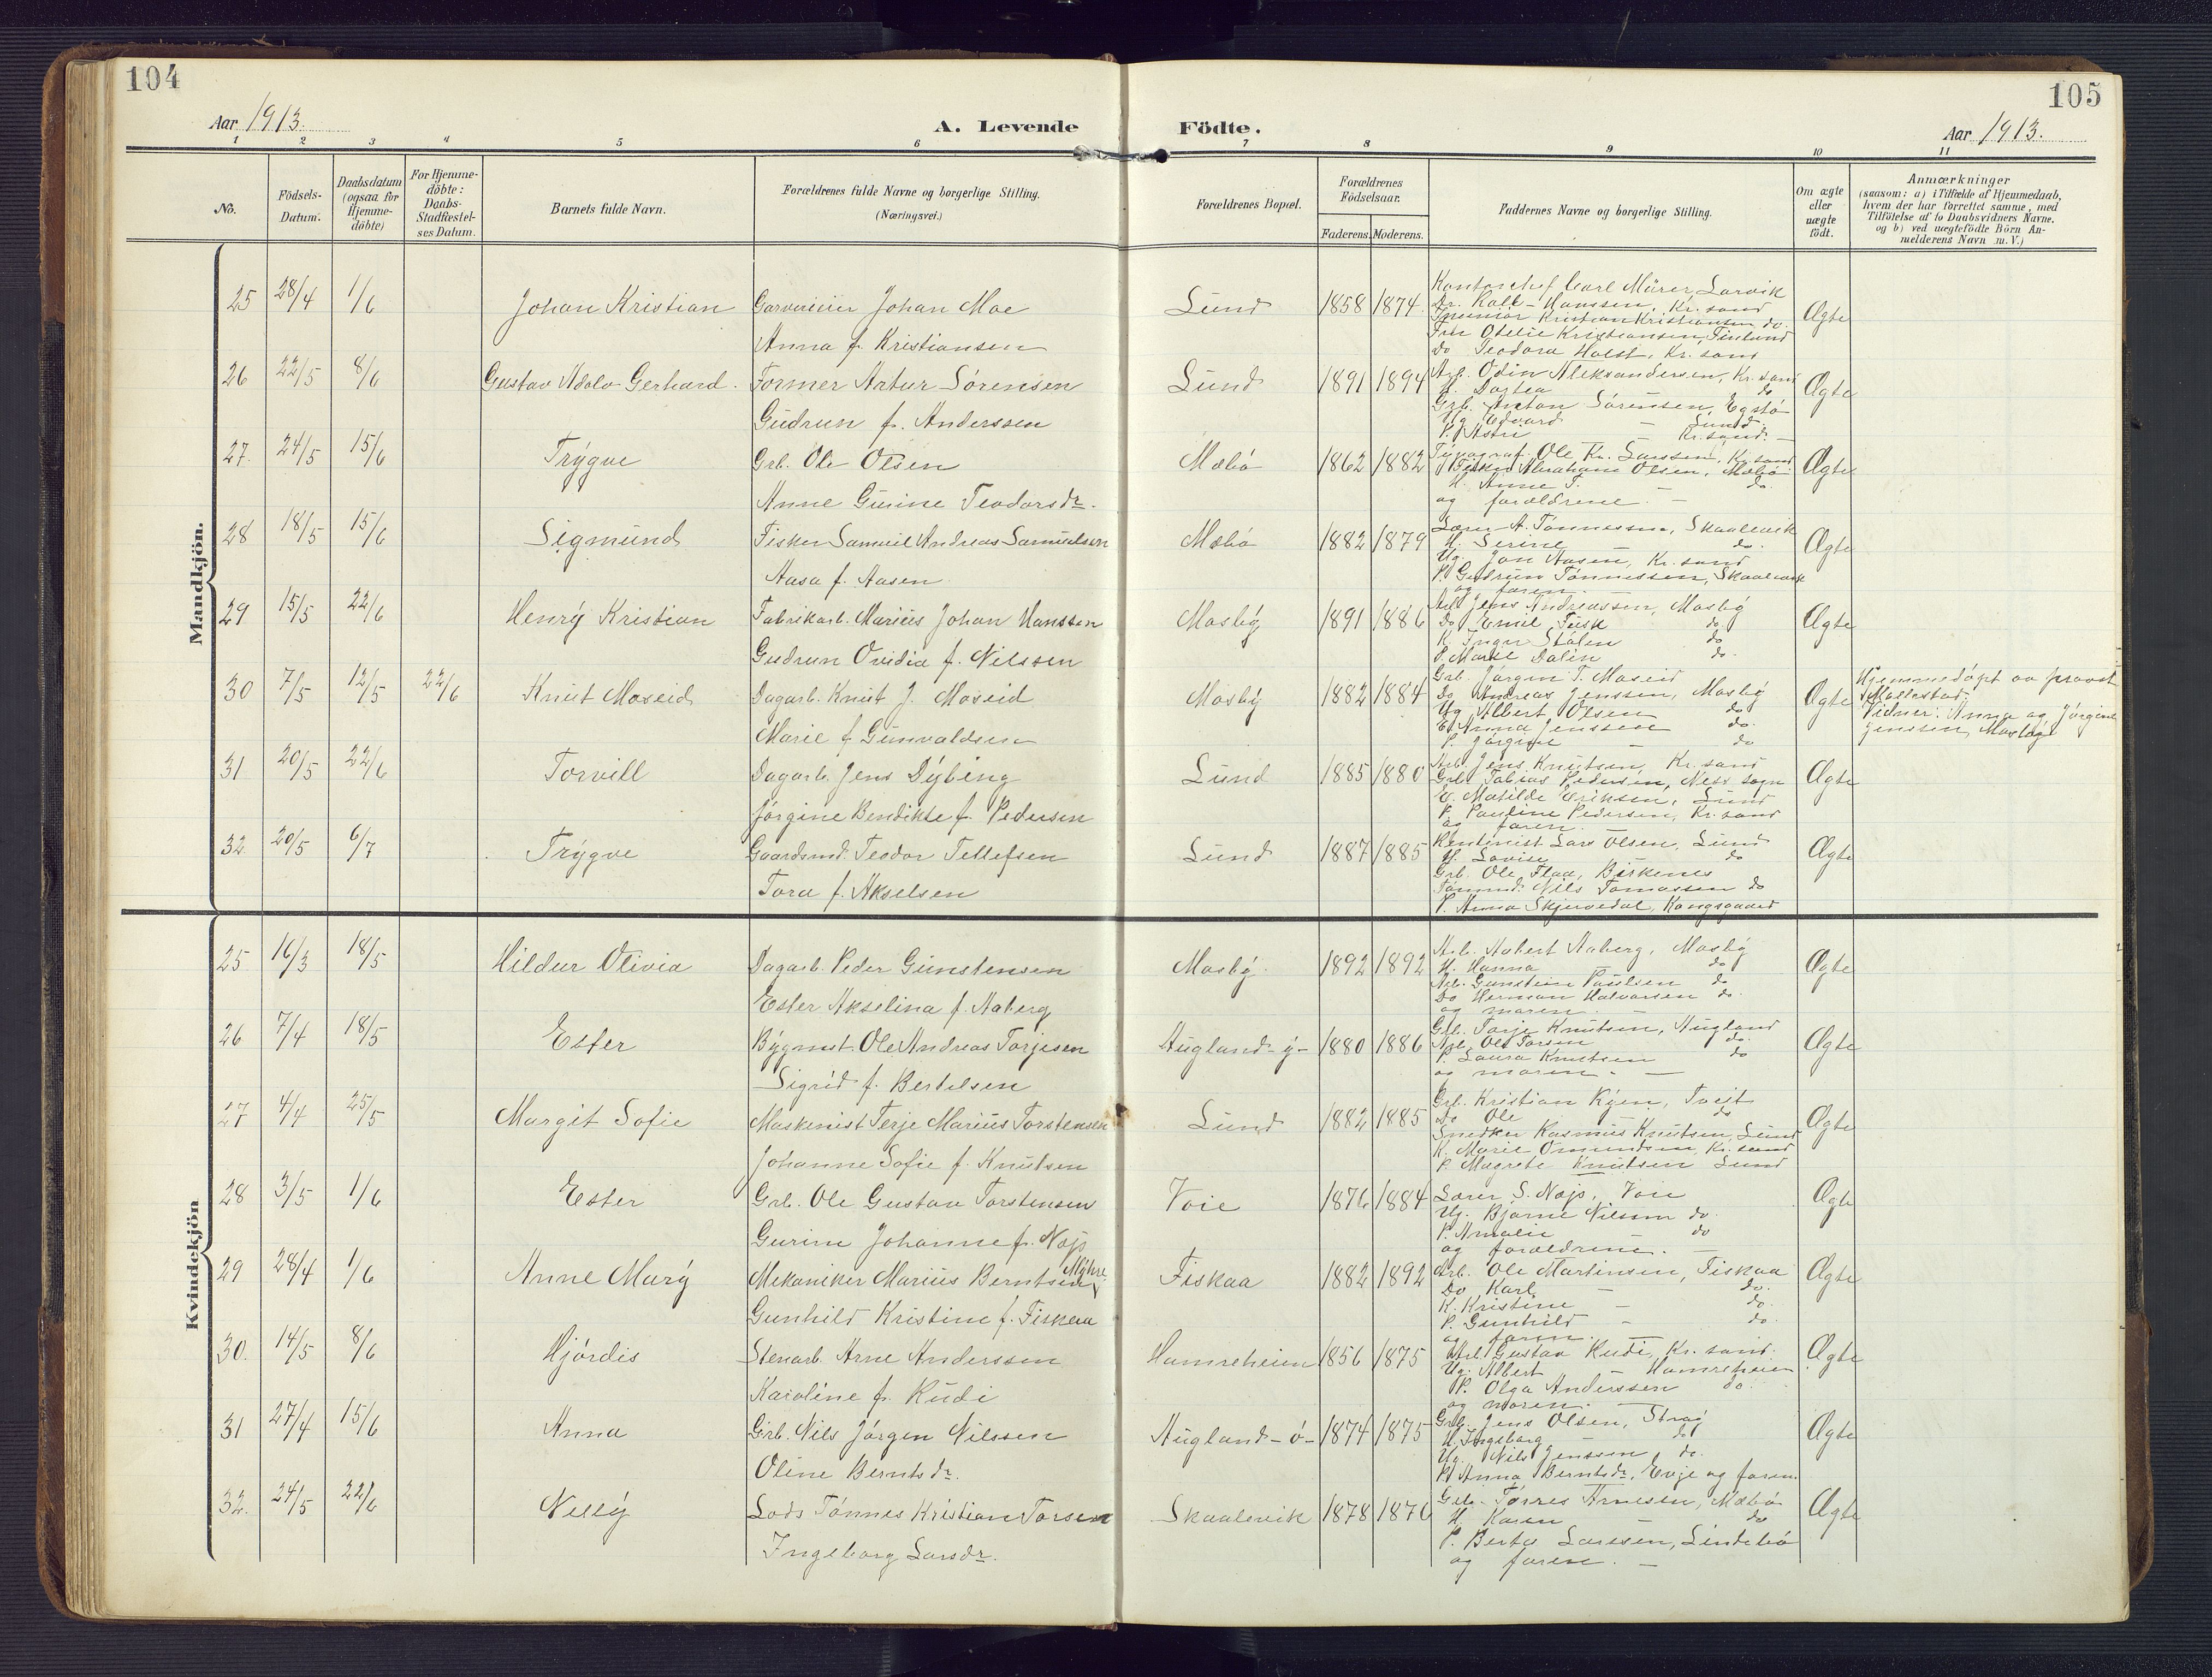 104
105
Aar 1913.
A. Levende
Födte.
Aar 1913.
1 2 3 4 5 6 7 8 9 10 11
No.
Födsels-Datum.
Daabsdatum (ogsaa for Hjemme-döbte)
For Hjemme-döbte: Daabs-Stadfæstel-ses Datum.
Barnets fulde Navn.
Forældrenes fulde Navne og borgerlige Stilling.
(Næringsvei.)
Forældrenes Bopæl.
Forældrenes Födselsaar.
Faderens. Moderens.
Faddernes Navne og borgerlige Stilling.
Om ægte eller uægte födt.
Anmærkninger
(saasom: a) i Tilfælde af Hjemmedaab,
hvem der har forrettet samme, med
Tilföielse af to Daabsvidners Navne.
og b) ved uægtefödte Börn An-
melderens Navn m. V.)
Mandkjön.
25 28/4 1/6 Johan Kristian Garvereier Johan Moe Lund 1858 1874 Ægte
Anna f. Kristiansen
Kontorchef Carl Mürer, Larvik
Dr. Kall-Hanssen, Kr.sand
Kristian Kristiansen do.
Frk Otelie Kristiansen, Finland
Do Teodora Holst, Kr.sand
26 22/5 8/6 Gustav Adolv Gerhard. Former Artur Sörensen Lund 1891 1894 Ægte
Gudrun f. Anderssen
Arb. Odin Aleksandersen, Kr.sand
H. Dortea do
Grb. Anton Sörensen, Egstö
Ug Edvard - Lund.
P. Astri - Kr.sand.
27. 24/5 15/6 Trygve Grb. Ole Olsen Mæbö 1862 1882 Ægte
Anne Gurine Teodorsdr.
Typograf Ole Kr. Larssen, Kr.sand
Fisker Abraham Olsen, Mæbö
H. Anne T. do.
og forældrene. -
28 18/5 15/6 Sigmund Fisker Samuel Andreas Samuelsen Mæbö 1882 1879 Ægte
Aasa f. Aasen
Lærer A. Tönnessen, Skaalevik
H. Serine do.
Ug. Jon Aasen, Kr.sand
P. Gudrun Tönnessen, Skaalevik
og faren. -
29 15/5 22/6 Henry Kristian Fabrikarb. Marius Johan Hanssen Mosby 1891 1886 Ægte
Gudrun Ovidia f. Nilssen
Arb Jens Andreassen, Mosby
Do Emil Fusk do.
K. Inger Stålen do
P. Marie Dalen do.
30 7/5 12/5 22/6 Knut Moseid Dagarb. Knut J. Moseid Mosby 1882 1884 Ægte
Marie f Gunvaldsen
Grb. Jörgen T. Moseid
Do Andreas Jenssen, Mosby
Ug Albert Olsen do
E. Anna Jenssen do.
P. Jörgine - do
Hjemmedöpt av provst
Mollestad.
Vidner: Anna og Jörgine
Jenssen, Mosby
31 20/5 22/6 Torvill Dagarb. Jens Dybing Lund 1885 1880 Ægte
Jörgine Bendikte f. Pedersen
Arb. Jens Knutsen, Kr.sand
Grb. Tobias Pedersen, Ness sogn
E. Matilde Eriksen, Lund
P. Pauline Pedersen, Kr.sand
og faren. -
32. 20/5 6/7 Trygve Gaardsmd. Teodor Tellefsen Lund 1887 1885 Ægte
Tora f. Akselsen
Rentenist Lars Olsen, Lund
H. Lovise do
Grb. Ole Flaa, Birkenes
Tömmd. Nils Tomassen do
P. Anna Skjervedal, Kongsgaard
Kvindekjön
25 16/3 18/5 Hildur Olivia Dagarb. Peder Gunstensen Mosby. 1892 1892 Ægte
Ester Akselina f. Aaberg
Arb. Robert Aaberg, Mosby
H. Hanna do
Arb. Gunstein Paulsen do
Do Herman Halvorsen do.
og moren. -
26 7/4 18/5 Ester Bygmst. Ole Andreas Torjesen Augland-y- 1880 1886 Ægte
Sigrid f. Bertelsen
Grb. Torje Knutsen, Augland
Arb. Ole Torsen do.
P. Laura Knutsen do
og moren. -
27 4/4 25/5 Margit Sofie Maskinist Terje Marius Torstensen Lund 1882 1885 Ægte
Johanne Sofie f. Knutsen
Grb. Kristian Ryen, Tveit
Do Ole - do
Snedker Rasmus Knutsen, Lund
K. Marie Omundsen, Kr.sand
P. Magrete Knutsen Lund
28 3/5 1/6 Ester Grb. Ole Gustav Torstensen Voie 1876 1884 Ægte
Gurine Johanne f. Nojs
Lærer S. Nojs, Voie
Ug. Bjarne Nilsen do.
P. Amalie do
og forældrene. -
29 28/4 1/6 Anne Mary Mekaniker Marius Berntsen Myhre Fiskaa 1882 1892 Ægte
Gunhild Kristine f. Fiskaa
Arb. Ole Martinsen, Fiskaa
Do Karl - do.
K. Kristine - do.
P. Gunhild - do.
og faren. -
30. 14/5 8/6 Hjördis Stenarb. Arne Anderssen Hamreheien 1856 1875 Ægte
Karoline f. Rudi
Arb. Gustav Rudi, Kr.sand.
Ug. Albert - Hamreheien
P. Olga Anderssen do.
og moren. -
31 27/4 15/6 Anna Grb. Nils Jörgen Nilssen Augland-ö- 1874 1875 Ægte
Oline Berntsdr.
Grb. Jens Olsen, Strai
H. Ingeborg - do
Ug. Nils Jenssen, do.
P. Anna Berntsdr, Evje og faren.
32. 24/5 22/6 Nelly Lods Tönnes Kristian Torsen Skaalevik 1878 1876 Ægte
Ingeborg Larsdr.
Grb. Torres Arnesen, Mæbö
H. Karen - do
P. Berta Larssen, Lindebö
og faren. -